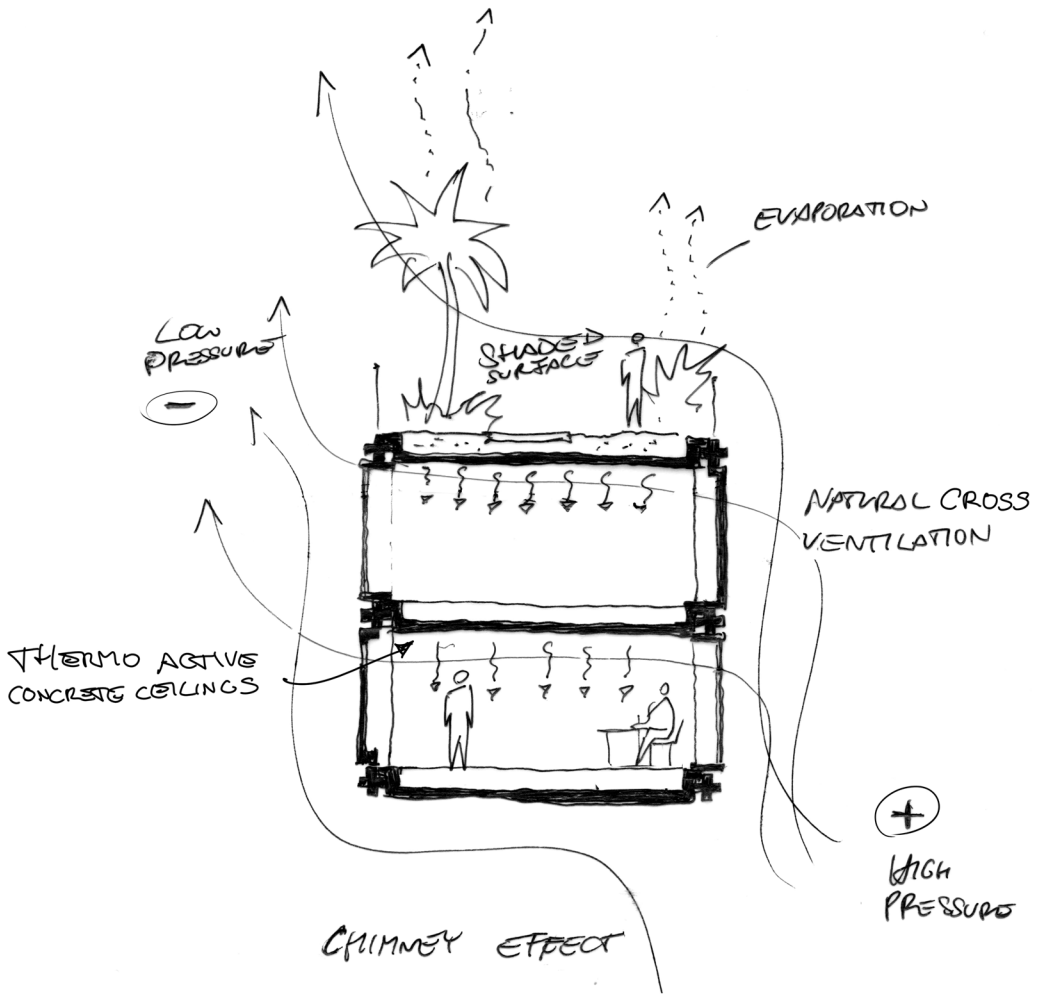 EVAPORATION
LOW
PRESSURE
-
SHADED
SURFACE
NATURAL CROSS
VENTILATION
THERMO ACTIVE
CONCRETE CEILINGS
+
HIGH
PRESSURE
CHIMNEY EFFECT